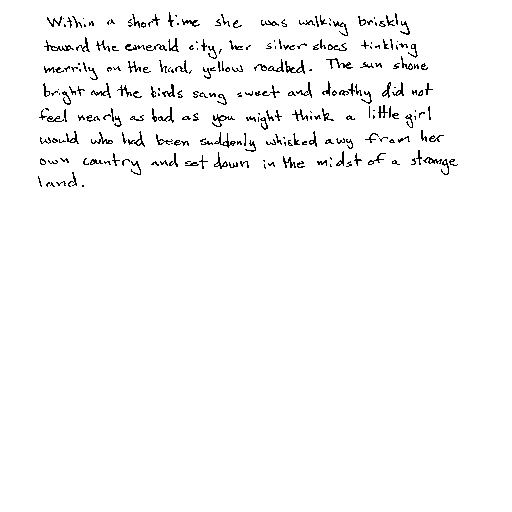 Within a short time she was walking briskly
toward the emerald city, her silver shoes tinkling
merrily on the hard, yellow roadbed. The sun shone
bright and the birds sang sweet and dorothy did not
feel nearly as bad as you might think a little girl
would who had been suddenly whisked awy from her
own country and set down in the midst of a strange
land.